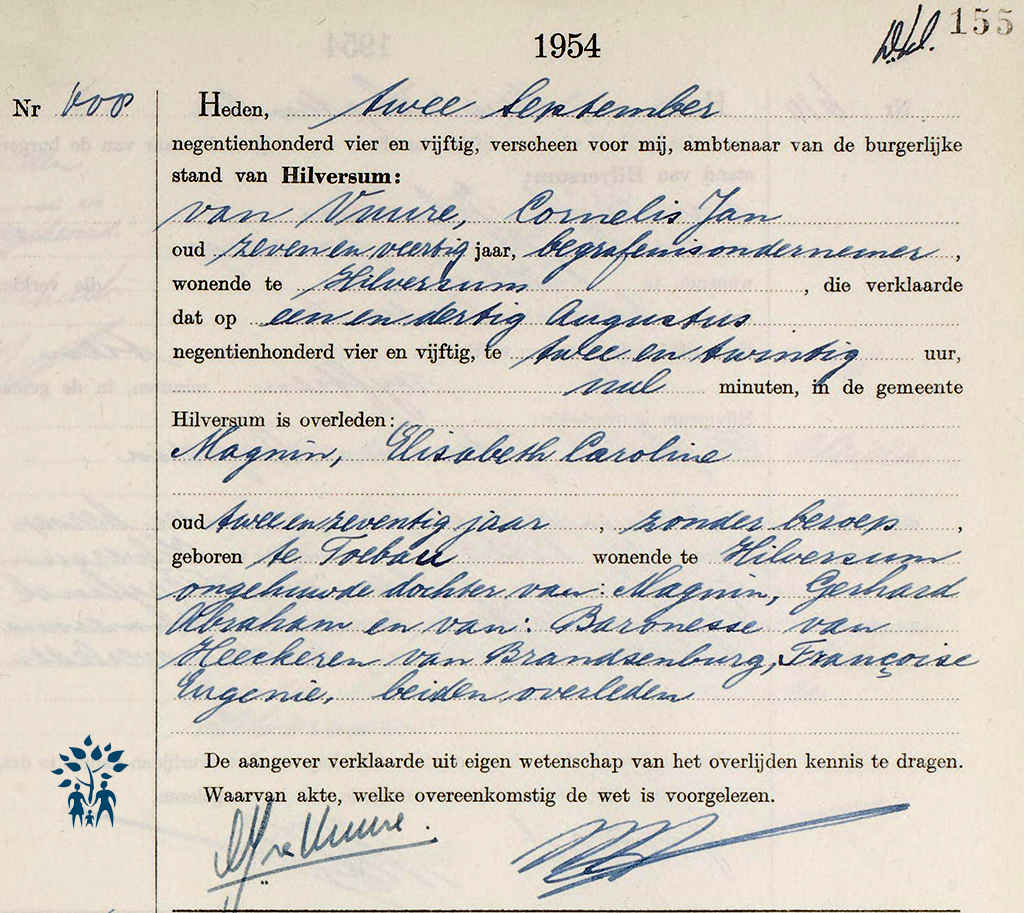 155
1954
Nr 600
Heden, twee September
negentienhonderd vier en vijftig, verscheen voor mij, ambtenaar van de burgerlijke
stand van Hilversum:
van Vuure, Cornelis Jan
oud zeven en veertig jaar, begrafenisondernemer ,
wonende te Hilversum , die verklaarde
dat op een en dertig Augustus
negentienhonderd vier en vijftig, te twee en twintig uur,
nul minuten, in de gemeente
Hilversum is overleden:
Magnin, Elisabeth Caroline
oud twee en zeventig jaar , zonder beroep ,
geboren te wonende te Hilversum
ongehuwde dochter van: Magnin, Gerhard
Abraham en van: Baronesse van
Heeckeren van Brandsenburg, Françoise
Eugenie, beiden overleden
De aangever verklaarde uit eigen wetenschap van het overlijden kennis te dragen.
Waarvan akte, welke overeenkomstig de wet is voorgelezen.